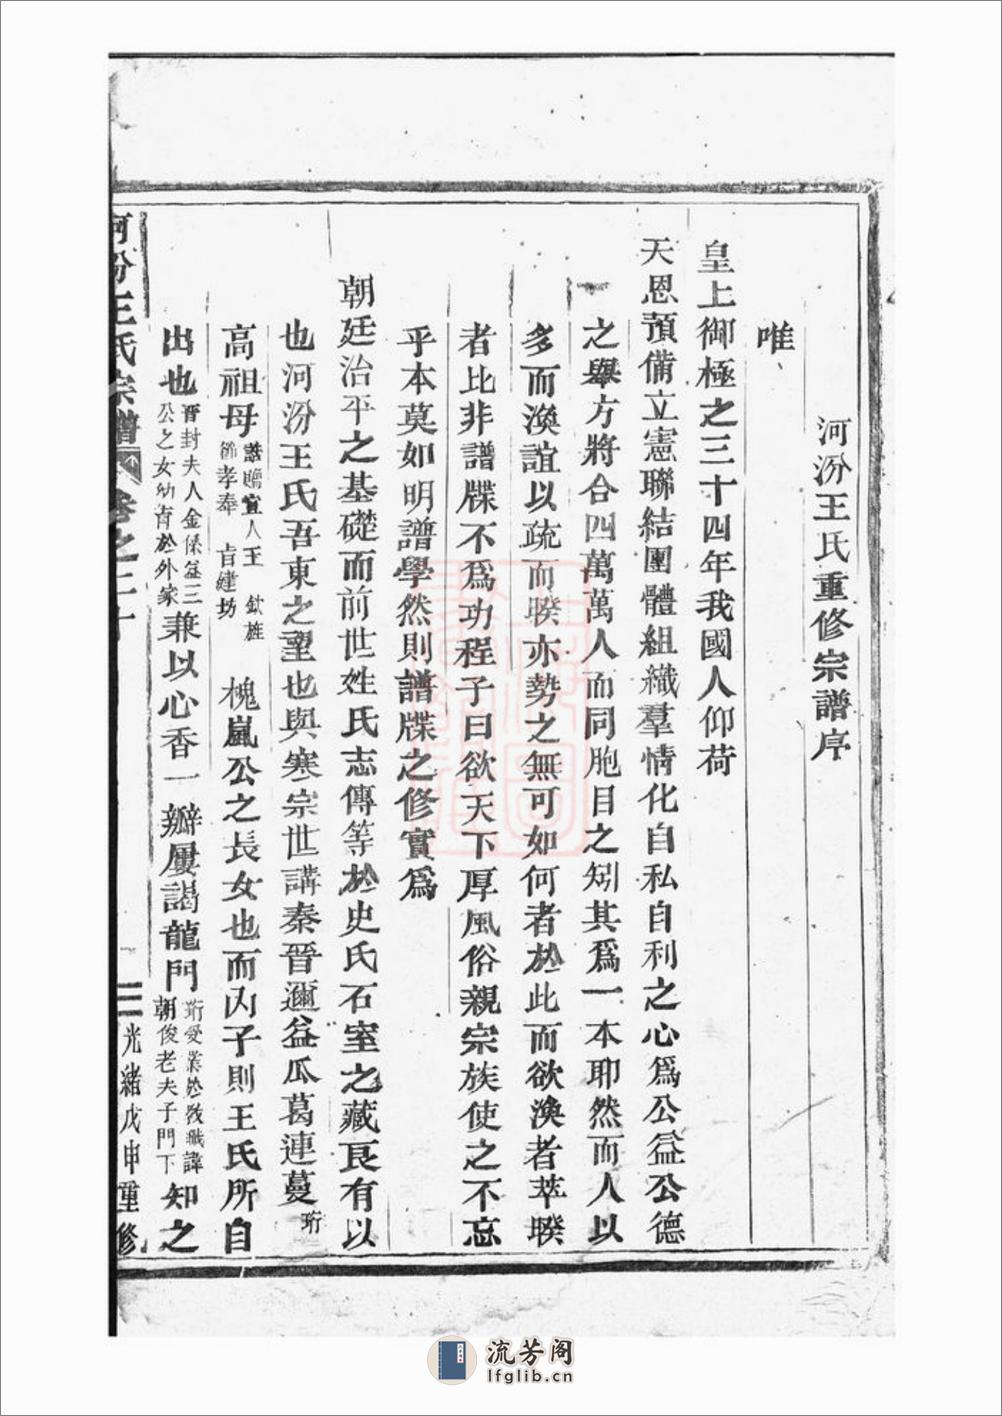 河汾王氏重修宗譜序
唯
皇上御極之三十四年我國人仰荷
天恩預備立憲聯結團體組織羣情化自私自利之心爲公益公德
之舉方將合四萬萬人而同胞目之矧其爲一本耶然而人以
多而渙誼以疏而暌亦勢之無可如何者於此而欲渙者萃暌
者比非譜牒不爲功程子曰欲天下厚風俗親宗族使之不忘
乎本莫如明譜學然則譜牒之修實爲
朝廷治平之基礎而前世姓氏志傳等於史氏石室之藏良有以
也河汾王氏吾東之望也與寒宗世講秦晉邇益瓜葛連蔓珩
高祖母誥贈宜人王 欽旌節孝奉 旨建坊 槐嵐公之長女也而內子則王氏所自
出也晋封夫人金傃益三公之女幼育於外家兼以心香一瓣屢謁龍門珩受業於教職諱朝俊老夫子門下知之
河汾王氏宗譜 卷之二十 二 光緒戊申重修
流芳阁
lfglib.cn